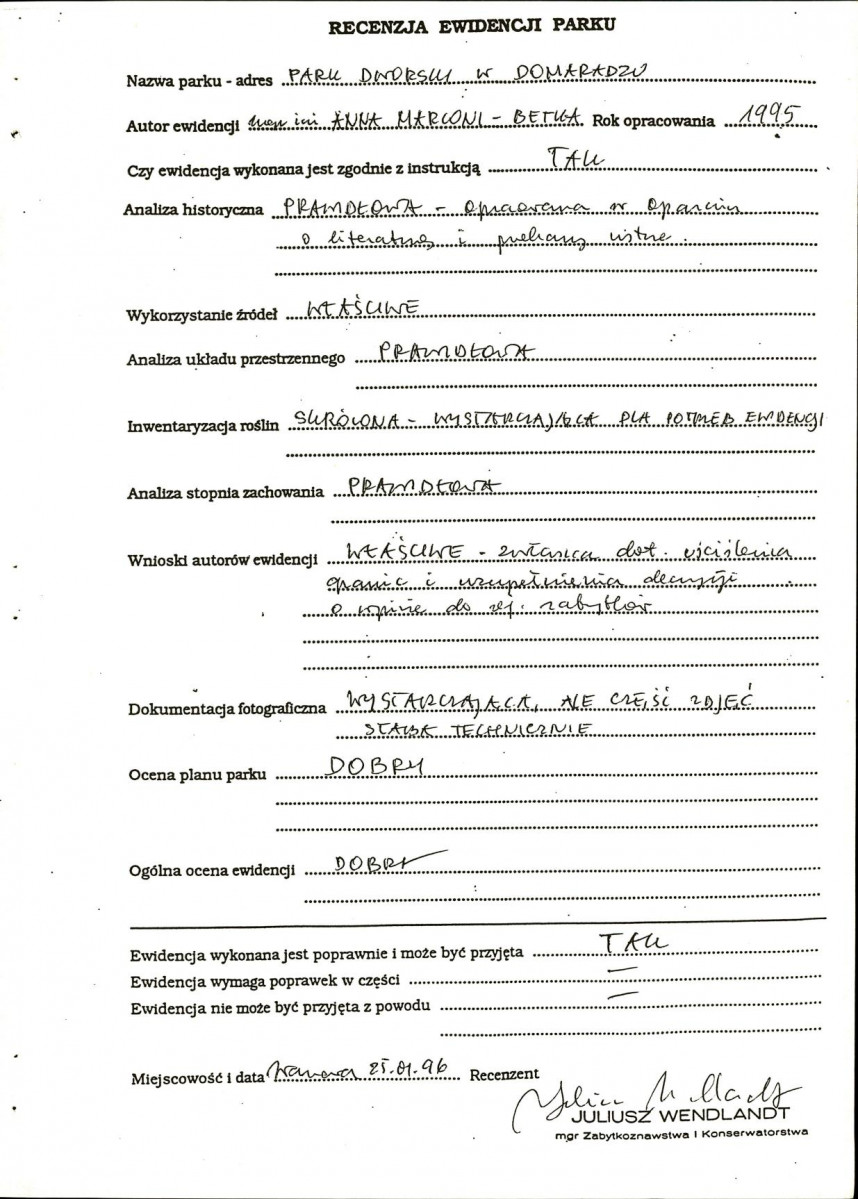 RECENZJA EWIDENCJI PARKU
Nazwa parku - adres PARK DWORSKI W DOMARADZU
Autor ewidencji mgr inż ANNA MARCONI - BETKA Rok opracowania 1995
Czy ewidencja wykonana jest zgodnie z instrukcją TAK
Analiza historyczna PRAWDŁOWA - opracowana w oparciu
o literaturę i przekazy ustne.
Wykorzystanie źródeł WŁAŚCIWE
Analiza układu przestrzennego PRAWDŁOWA
Inwentaryzacja roślin SKRÓCONA - WYSTARCZAJĄCA DLA POTRZEB EWIDENCJI
Analiza stopnia zachowania PRAWDŁOWA
Wnioski autorów ewidencji WŁAŚCIWE - zwłaszcza dot. uściślenia
granic i uzupełnienia decyzji
o wpisie do rej. zabytków
Dokumentacja fotograficzna WYSTARCZAJĄCA, ALE CZĘŚĆ ZDJĘĆ
SŁABA TECHNICZNIE
Ocena planu parku DOBRY
Ogólna ocena ewidencji DOBRA
Ewidencja wykonana jest poprawnie i może być przyjęta TAK
Ewidencja wymaga poprawek w części —
Ewidencja nie może być przyjęta z powodu —
Miejscowość i data Warszawa 25.01.96 Recenzent
JULIUSZ WENDLANDT
mgr Zabytkoznawstwa i Konserwatorstwa